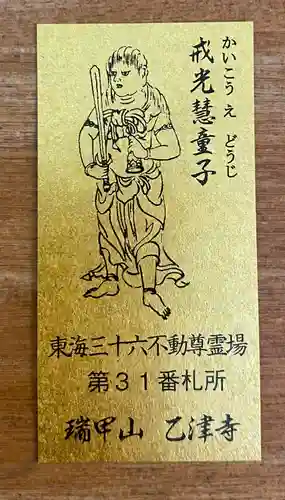 戒光慧童子
かいこう え どうじ
東海三十六不動尊霊場
第31番札所
瑞甲山 乙津寺